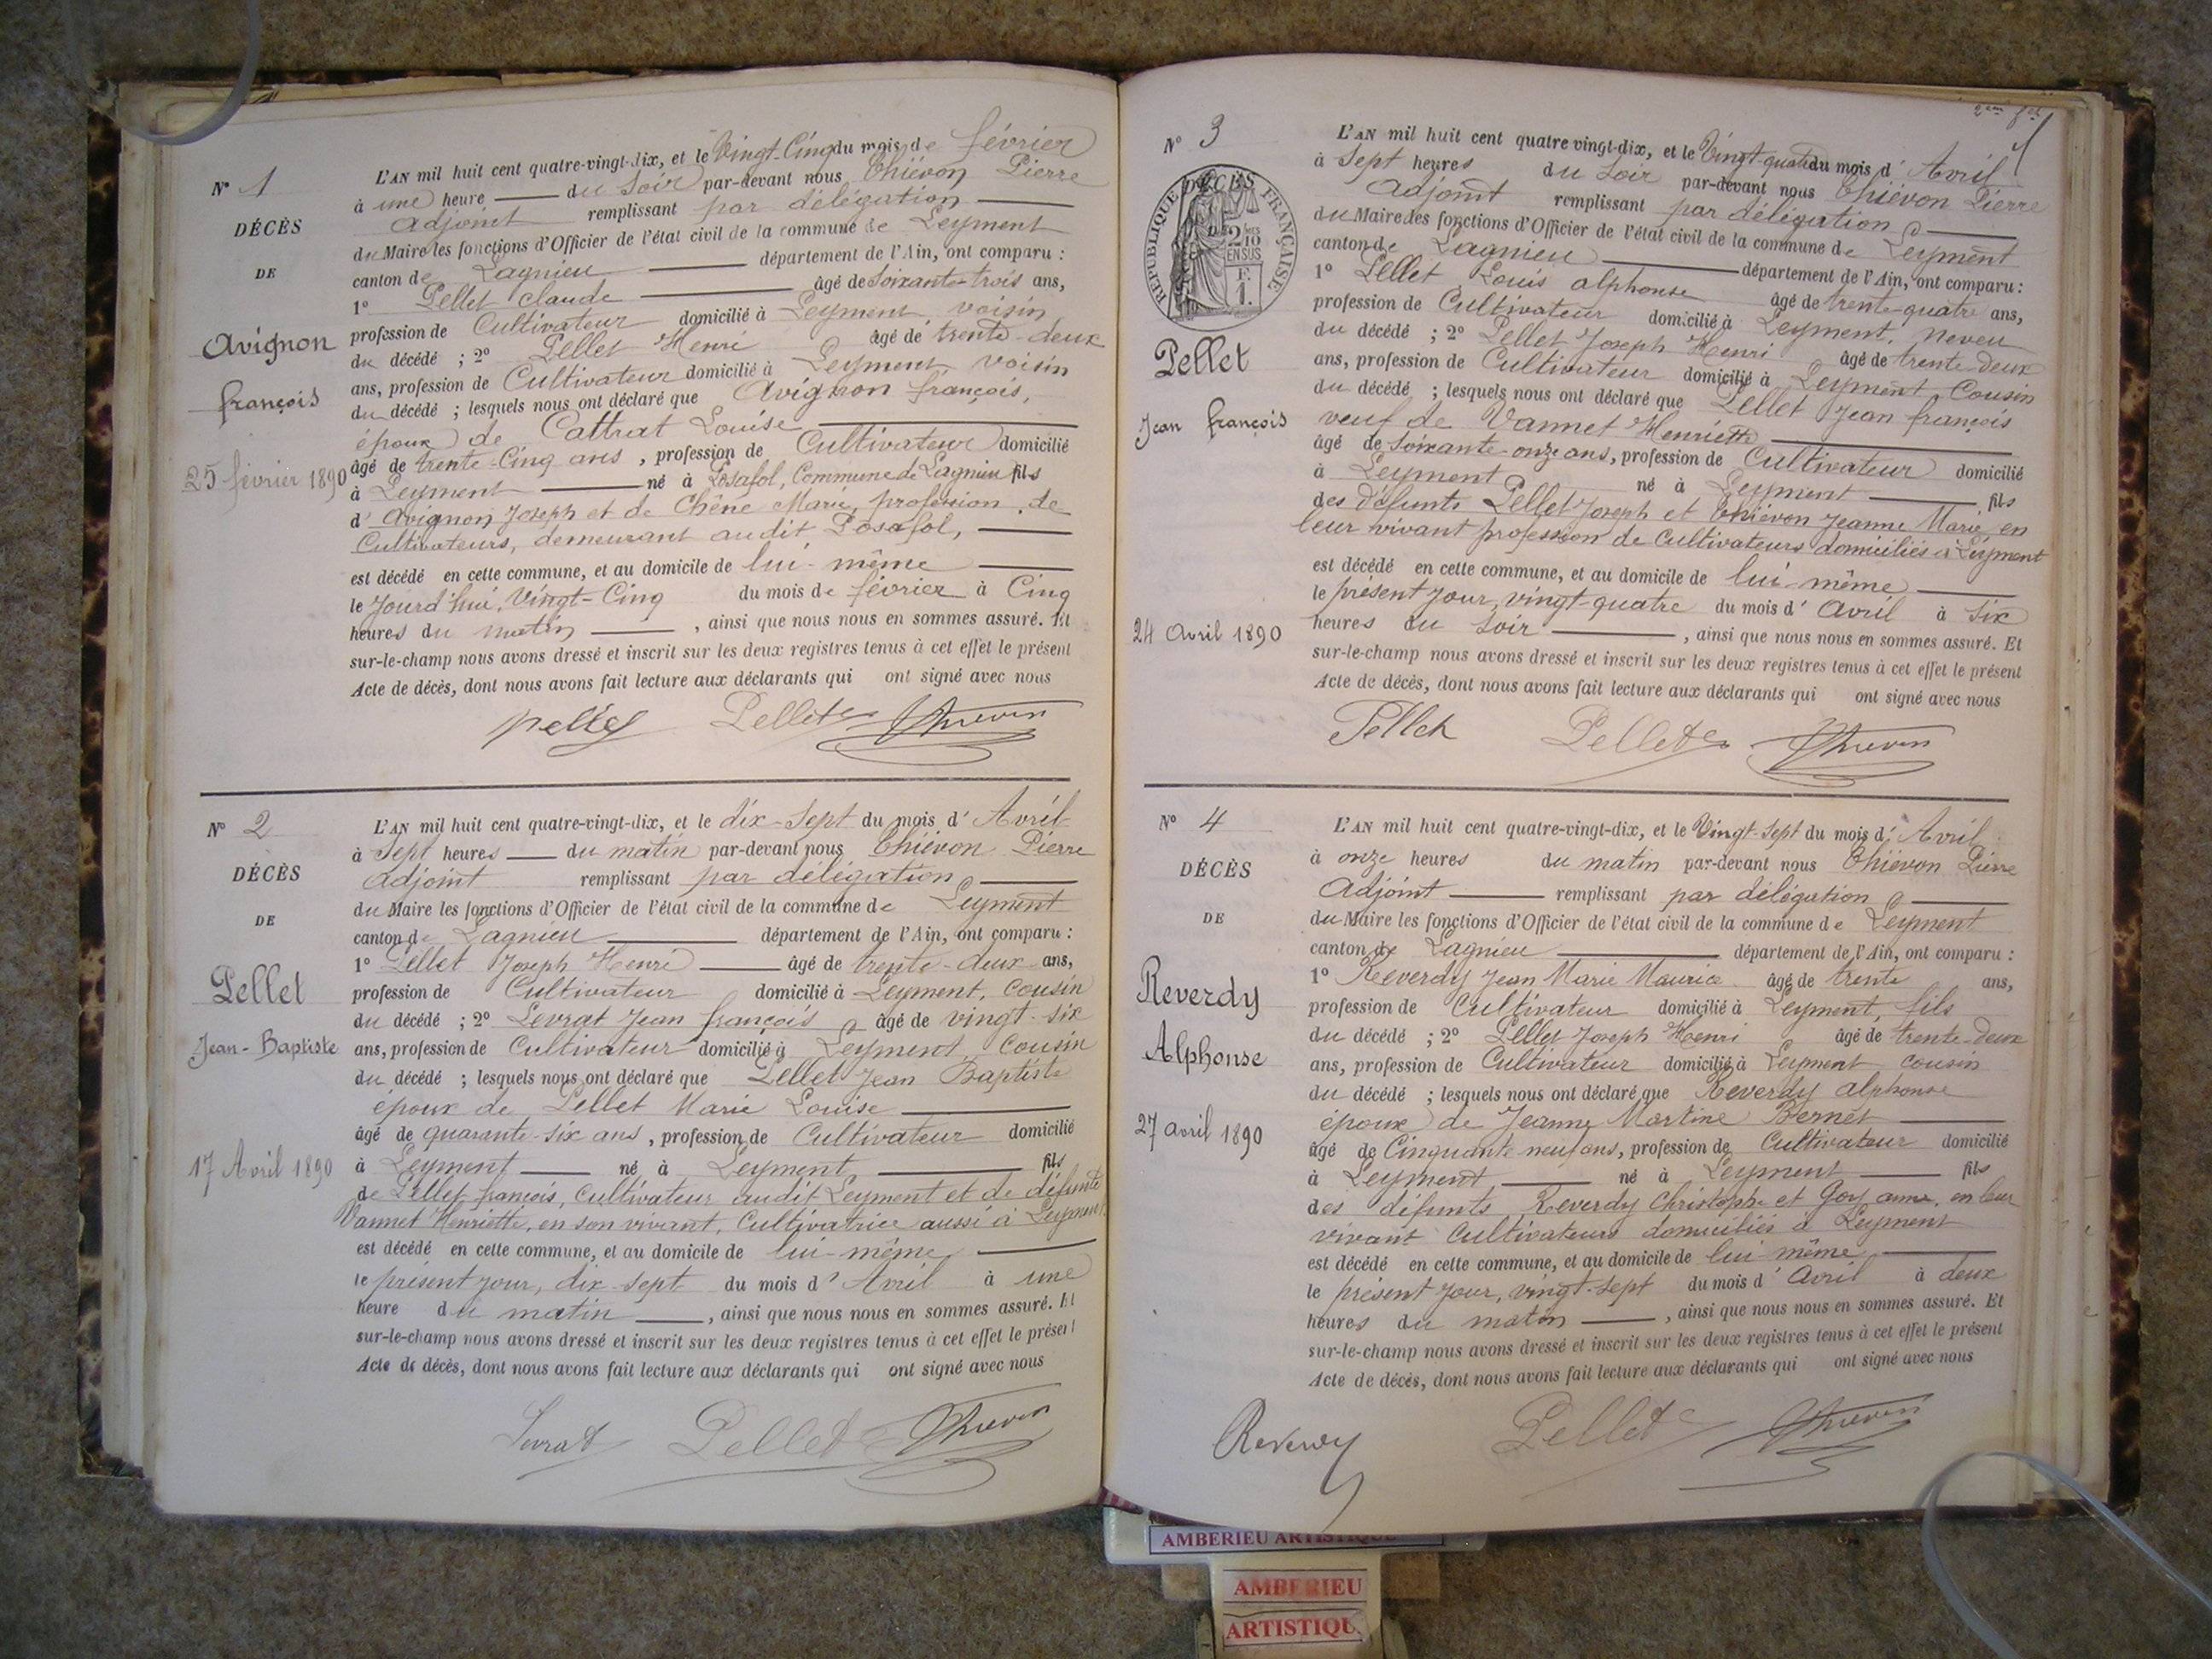 N° 1
DÉCÈS
DE
Avignon
françois
25 février 1890
L'AN mil huit cent quatre-vingt-dix, et le Vingt-Cinq du mois de février
à une heure du soir par-devant nous Thiévon Pierre
adjoint remplissant par délégation
du Maire les fonctions d'Officier de l'état civil de la commune de Leyment
canton de Lagnieu département de l'Ain, ont comparu :
1° Pellet claude âgé de soixante-trois ans,
profession de Cultivateur domicilié à Leyment, voisin
du décédé ; 2° Pellet Henri âgé de trente-deux
ans, profession de Cultivateur domicilié à Leyment voisin
du décédé ; lesquels nous ont déclaré que Avignon françois,
époux de Cattrat Louise
âgé de trente-Cinq ans, profession de Cultivateur domicilié
à Leyment né à Posafol, Commune de Lagnieu fils
d'Avignon Joseph et de Chêne Marie, profession de
Cultivateurs, demeurant audit Posafol,
est décédé en cette commune, et au domicile de lui-même
le jourd'hui, Vingt-Cinq du mois de février à Cinq
heures du matin, ainsi que nous nous en sommes assuré. Et
sur-le-champ nous avons dressé et inscrit sur les deux registres tenus à cet effet le présent
Acte de décès, dont nous avons fait lecture aux déclarants qui ont signé avec nous
Pellet Thievon
N° 2
DÉCÈS
DE
Pellet
Jean-Baptiste
17 Avril 1890
L'AN mil huit cent quatre-vingt-dix, et le dix-Sept du mois d'Avril
à Sept heures du matin par-devant nous Thiévon Pierre
adjoint remplissant par délégation
du Maire les fonctions d'Officier de l'état civil de la commune de Leyment
canton de Lagnieu département de l'Ain, ont comparu :
1° Pellet Joseph Henri âgé de trente-deux ans,
profession de Cultivateur domicilié à Leyment, cousin
du décédé ; 2° Levrat Jean françois âgé de vingt-six
ans, profession de Cultivateur domicilié à Leyment, cousin
du décédé ; lesquels nous ont déclaré que Pellet Jean Baptiste
époux de Pellet Marie Louise
âgé de quarante-six ans, profession de Cultivateur domicilié
à Leyment né à Leyment, fils
de Pellet françois, cultivateur audit Leyment et de défunte
Vannet Henriette, en son vivant, Cultivatrice aussi à Leyment
est décédé en cette commune, et au domicile de lui-même
le présent jour, dix-sept du mois d'Avril à une
heure du matin, ainsi que nous nous en sommes assuré. Et
sur-le-champ nous avons dressé et inscrit sur les deux registres tenus à cet effet le présent
Acte de décès, dont nous avons fait lecture aux déclarants qui ont signé avec nous
Levrat Pellet Thievon
N° 3
RÉPUBLIQUE FRANÇAISE
DÉCÈS
2 10
EN SUS
F.
1.
Pellet
Jean françois
24 Avril 1890
L'AN mil huit cent quatre vingt-dix, et le Vingt-quatre du mois d'Avril
à Sept heures du soir par-devant nous Thiévon Pierre
adjoint remplissant par délégation
du Maire les fonctions d'Officier de l'état civil de la commune de Leyment
canton de Lagnieu département de l'Ain, ont comparu :
1° Pellet Louis alphonse âgé de trente-quatre ans,
profession de Cultivateur domicilié à Leyment, neveu
du décédé ; 2° Pellet Joseph Henri âgé de trente-deux
ans, profession de Cultivateur domicilié à Leyment Cousin
du décédé ; lesquels nous ont déclaré que Pellet Jean françois
veuf de Vannet Henriette
âgé de soixante-onze ans, profession de Cultivateur domicilié
à Leyment, né à Leyment fils
des défunts Pellet Joseph et Thiévon Jeanne Marie, en
leur vivant profession de Cultivateurs domiciliés à Leyment
est décédé en cette commune, et au domicile de lui-même
le présent jour, vingt-quatre du mois d'Avril à six
heures du soir, ainsi que nous nous en sommes assuré. Et
sur-le-champ nous avons dressé et inscrit sur les deux registres tenus à cet effet le présent
Acte de décès, dont nous avons fait lecture aux déclarants qui ont signé avec nous
Pellet Pellet Thievon
N° 4
DÉCÈS
DE
Reverdy
Alphonse
27 avril 1890
L'AN mil huit cent quatre-vingt-dix, et le Vingt-sept du mois d'Avril
à onze heures du matin par-devant nous Thiévon Pierre
adjoint remplissant par délégation
du Maire les fonctions d'Officier de l'état civil de la commune de Leyment
canton de Lagnieu département de l'Ain, ont comparu :
1° Reverdy Jean Marie Maurice âgé de trente ans,
profession de Cultivateur domicilié à Leyment, fils
du décédé ; 2° Pellet Joseph Henri âgé de trente-deux
ans, profession de Cultivateur domicilié à Leyment cousin
du décédé ; lesquels nous ont déclaré que Reverdy alphonse
époux de Jeanne Martine Bernet
âgé de Cinquante neuf ans, profession de Cultivateur domicilié
à Leyment, né à Leyment fils
des défunts Reverdy Christophe et Goy anne, en leur
vivant Cultivateurs domiciliés à Leyment
est décédé en cette commune, et au domicile de lui-même
le présent jour, vingt-sept du mois d'Avril à deux
heures du matin, ainsi que nous nous en sommes assuré. Et
sur-le-champ nous avons dressé et inscrit sur les deux registres tenus à cet effet le présent
Acte de décès, dont nous avons fait lecture aux déclarants qui ont signé avec nous
Reverdy Pellet Thievon
AMBERIEU ARTISTIQUE
AMBERIEU
ARTISTIQU